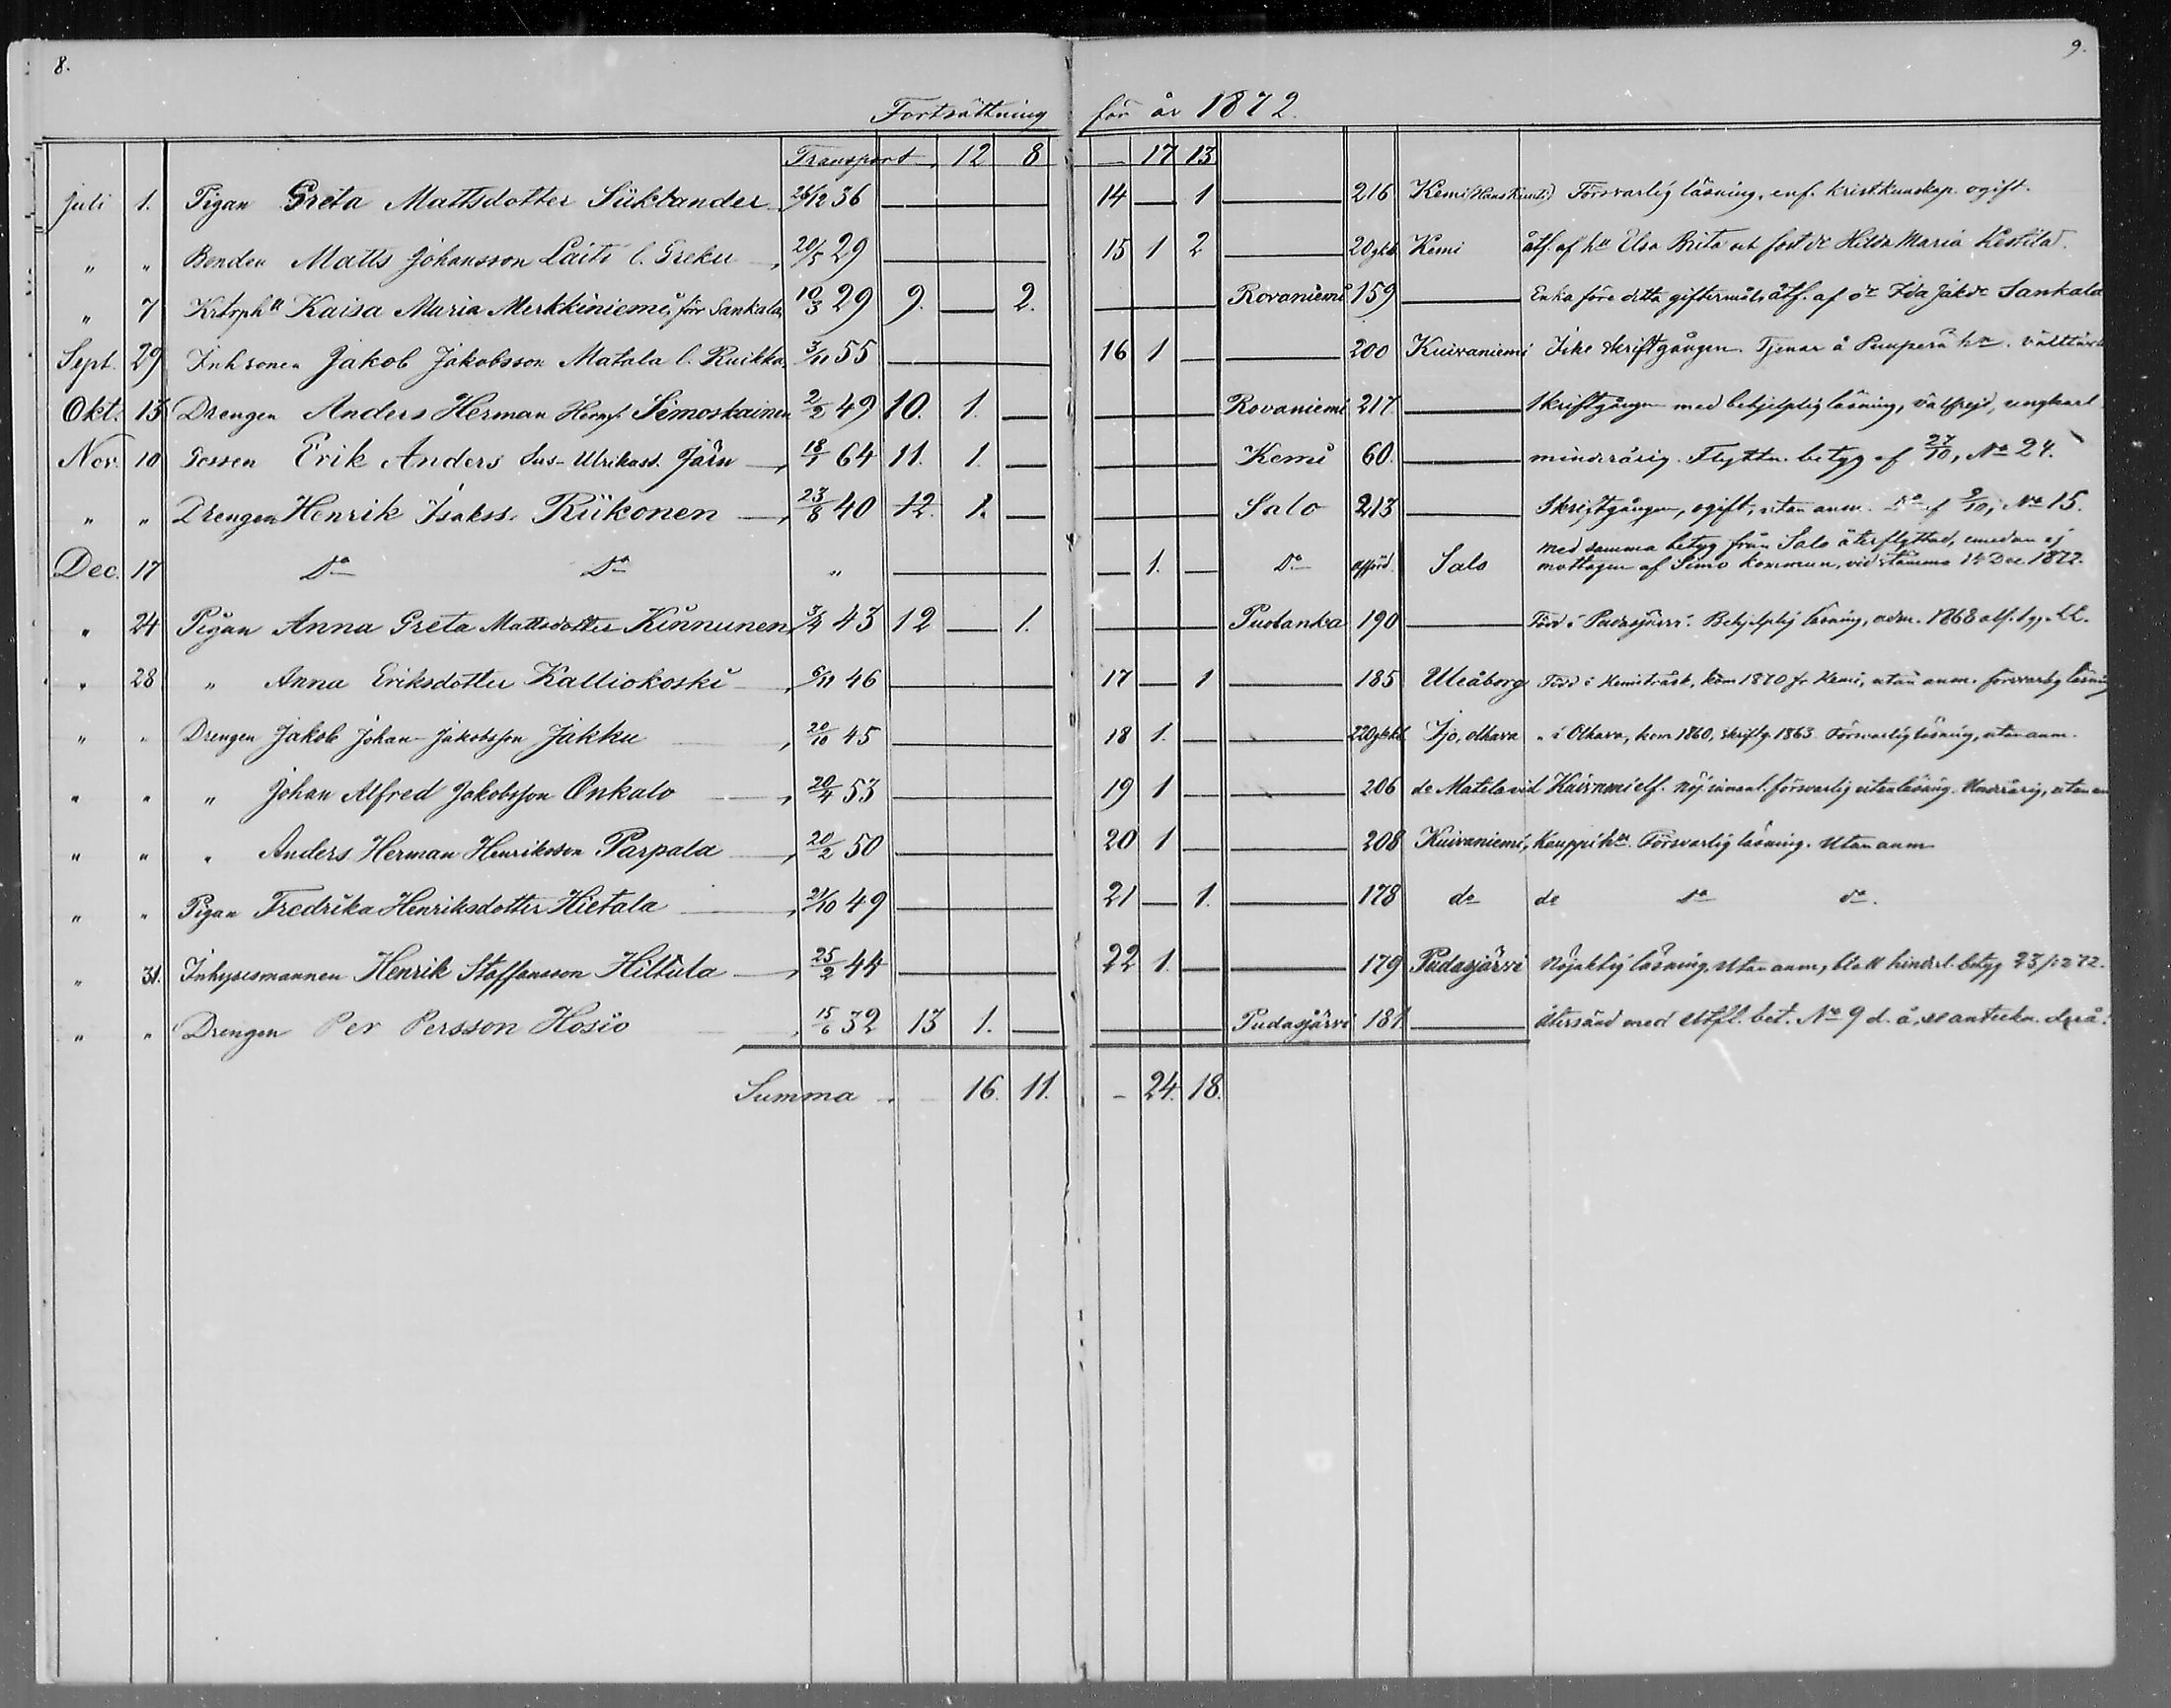 8. 9.
Fortsättning för år 1872.
Transport 12 8 — 17 13
Juli 1. Pigan Greta Mattsdotter 26/12 36 — 14 — 1 — 216 Kemi Försvarlig läsning, enf. kristkunskap. ogift.
" " Bonden Matts Johansson Laiti l. Greku 20/5 29 — 15 1 2 — 20 Kemi åtf. af hu Elsa Brita och Hilda Maria
" 7 Kaisa Maria Merkkiniemi för Sankala 10/3 29 9. — 2. — Rovaniemi 159 — Enka före detta giftermål, åtf. af Ida Jakdr Sankala
Sept. 29 Jakob Jakobsson Matala l. Ruikka 3/11 55 — 16 1 — — 200 Kuivaniemi Icke skriftgången. Tjenar å
Okt. 13 Drengen Anders Herman Simoskainen 2/2 49 10. 1. — — Rovaniemi 217. — Skriftgången med behjelplig läsning, välfrejd, ungkarl
Nov. 10 Gossen Erik Anders Sus-Ulrikass. Järn 18/1 64 11. 1. — — Kemi 60. — minderårig. Flyttn. betyg af 27/10, No 24.
" " Drengen Henrik Isakss. Riikonen 23/8 40 12. 1. — — Salo 213 — Skriftgången, ogift, utan anm. Do af 9/10, No 15.
Dec. 17 Do Do " — — 1. — Do Salo med samma betyg från Salo återflyttad, emedan ej
mottagen af Simo kommun, vid stämma 15 Dec 1872.
" 24 Pigan Anna Greta Mattsdotter Kinnunen 3/4 43 12 — 1. — 190 — Född i Pudasjärvi. Behjelplig läsning, adm. 1868
" 28 " Anna Eriksdotter Kalliokoski 6/11 46 — 17 — 1 — 185 Uleåborg Född i Kemiträsk, kom 1870 fr Kemi, utan anm. försvarlig läsning
" " Drengen Jakob Johan Jakobsson Jakku 20/10 45 — 18 1. — — 220 Ijo, olhava " i Olhava, kom 1860, skriftg. 1863. Försvarlig läsning, utan anm.
" " " Johan Alfred Jakobsson Onkalo 20/4 53 — 19 1 — — 206 do Matila vid försvarlig utanläsning. Minderårig, utan
" " " Anders Herman Henriksson Parpala 20/2 50 — 20 1 — — 208 Kuivaniemi, Kauppi Försvarlig läsning. Utan anm
" " Pigan Fredrika Henriksdotter Hietala 21/10 49 — 21 — 1. — 178 do do do do.
" 31. Inhysesmannen Henrik Staffansson Hiltula 25/2 44 — 22 1. — — 179 Pudasjärvi Nöjaktig läsning. Utan anm, blott hindersl. betyg 23/12 72.
" " Drengen Per Persson Hosio 15/6 32 13 1. — — Pudasjärvi 181 — återsänd med utfl. bet. No 9 d. å,
Summa — 16. 11. — 24. 18.